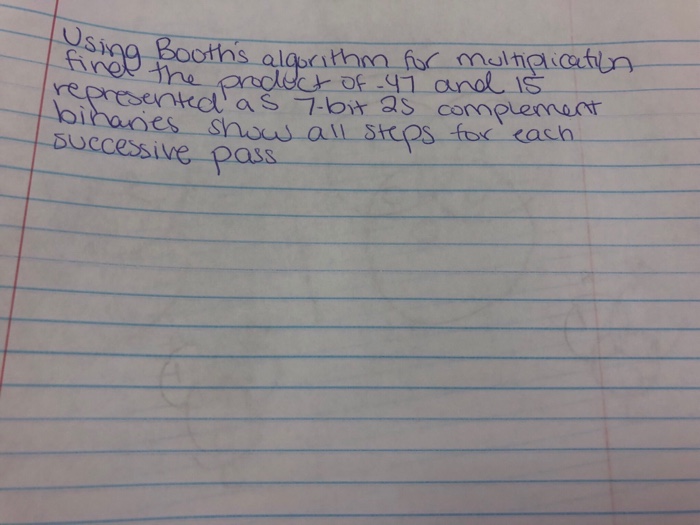 Using Booth's algorithm for multiplication
find the product of -47 and 15
represented as 7-bit 2s complement
binaries show all steps for each
successive pass